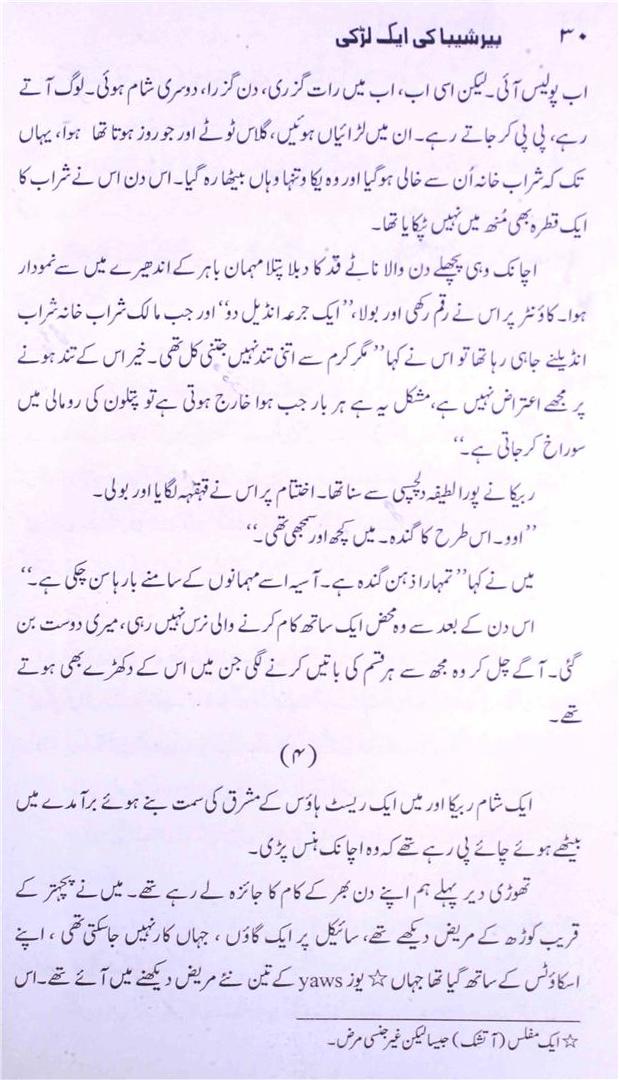 ۳۰ بیر شیبا کی ایک لڑکی
اب پولیس آئی۔ لیکن اسی اب، اب میں رات گزری، دن گزرا، دوسری شام ہوئی۔ لوگ آتے
رہے، پی پی کر جاتے رہے۔ ان میں لڑائیاں ہوئیں، گلاس ٹوٹے اور جو روز ہوتا تھا ہوا، یہاں
تک کہ شراب خانہ اُن سے خالی ہوگیا اور وہ یکا وتنہا وہاں بیٹھا رہ گیا۔ اس دن اس نے شراب کا
ایک قطرہ بھی مُنھ میں نہیں ٹپکایا تھا۔
اچانک وہی پچھلے دن والا ناٹے قد کا دبلا پتلا مہمان باہر کے اندھیرے میں سے نمودار
ہوا۔ کاؤنٹر پر اس نے رقم رکھی اور بولا، ’’ایک جرعہ انڈیل دو‘‘ اور جب مالک شراب خانہ شراب
انڈیلنے جاہی رہا تھا تو اس نے کہا ’’مگر کرم سے اتنی تند نہیں جتنی کل تھی۔ خیر اس کے تند ہونے
پر مجھے اعتراض نہیں ہے، مشکل یہ ہے ہر بار جب ہوا خارج ہوتی ہے تو پتلون کی رومالی میں
سوراخ کر جاتی ہے۔‘‘
ربیکا نے پورا لطیفہ دلچسپی سے سنا تھا۔ اختتام پر اس نے قہقہہ لگایا اور بولی۔
’’اوو۔ اس طرح کا گندہ۔ میں کچھ اور سمجھی تھی۔‘‘
میں نے کہا ’’تمہارا ذہن گندہ ہے۔ آسیہ اسے مہمانوں کے سامنے بارہا سن چکی ہے۔‘‘
اس دن کے بعد سے وہ محض ایک ساتھ کام کرنے والی نرس نہیں رہی، میری دوست بن
گئی۔ آگے چل کر وہ مجھ سے ہر قسم کی باتیں کرنے لگی جن میں اس کے دکھڑے بھی ہوتے
تھے۔
(۴)
ایک شام ربیکا اور میں ایک ریسٹ ہاؤس کے مشرق کی سمت بنے ہوئے برآمدے میں
بیٹھے ہوئے چائے پی رہے تھے کہ وہ اچانک ہنس پڑی۔
تھوڑی دیر پہلے ہم اپنے دن بھر کے کام کا جائزہ لے رہے تھے۔ میں نے پچہتر کے
قریب کوڑھ کے مریض دیکھے تھے، سائیکل پر ایک گاؤں، جہاں کار نہیں جاسکتی تھی، اپنے
اسکاؤٹس کے ساتھ گیا تھا جہاں ☆ یوز yaws کے تین نئے مریض دیکھنے میں آئے تھے۔ اس
☆ ایک مفلس (آتشک) جیسا لیکن غیر جنسی مرض۔